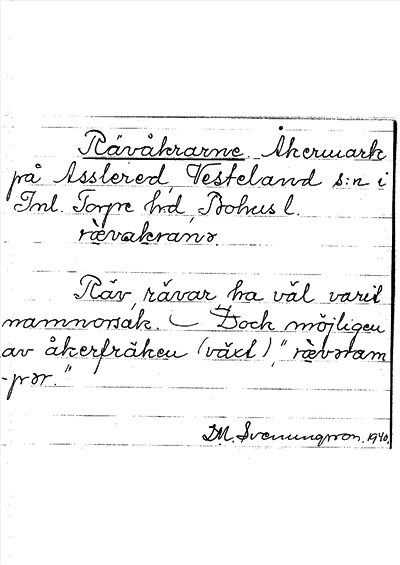 Rävåkrarne. Åkermark
på Asslered, Vesteland s:n i
Inl. Torpe hrd, Bohus l.
rævakranə.
Räv, rävar, ha väl varit
namnorsak. — Dock möjligen
av åkerfräken (växt), "rævəram
-pər."
D.M. Svenungsson. 1940.